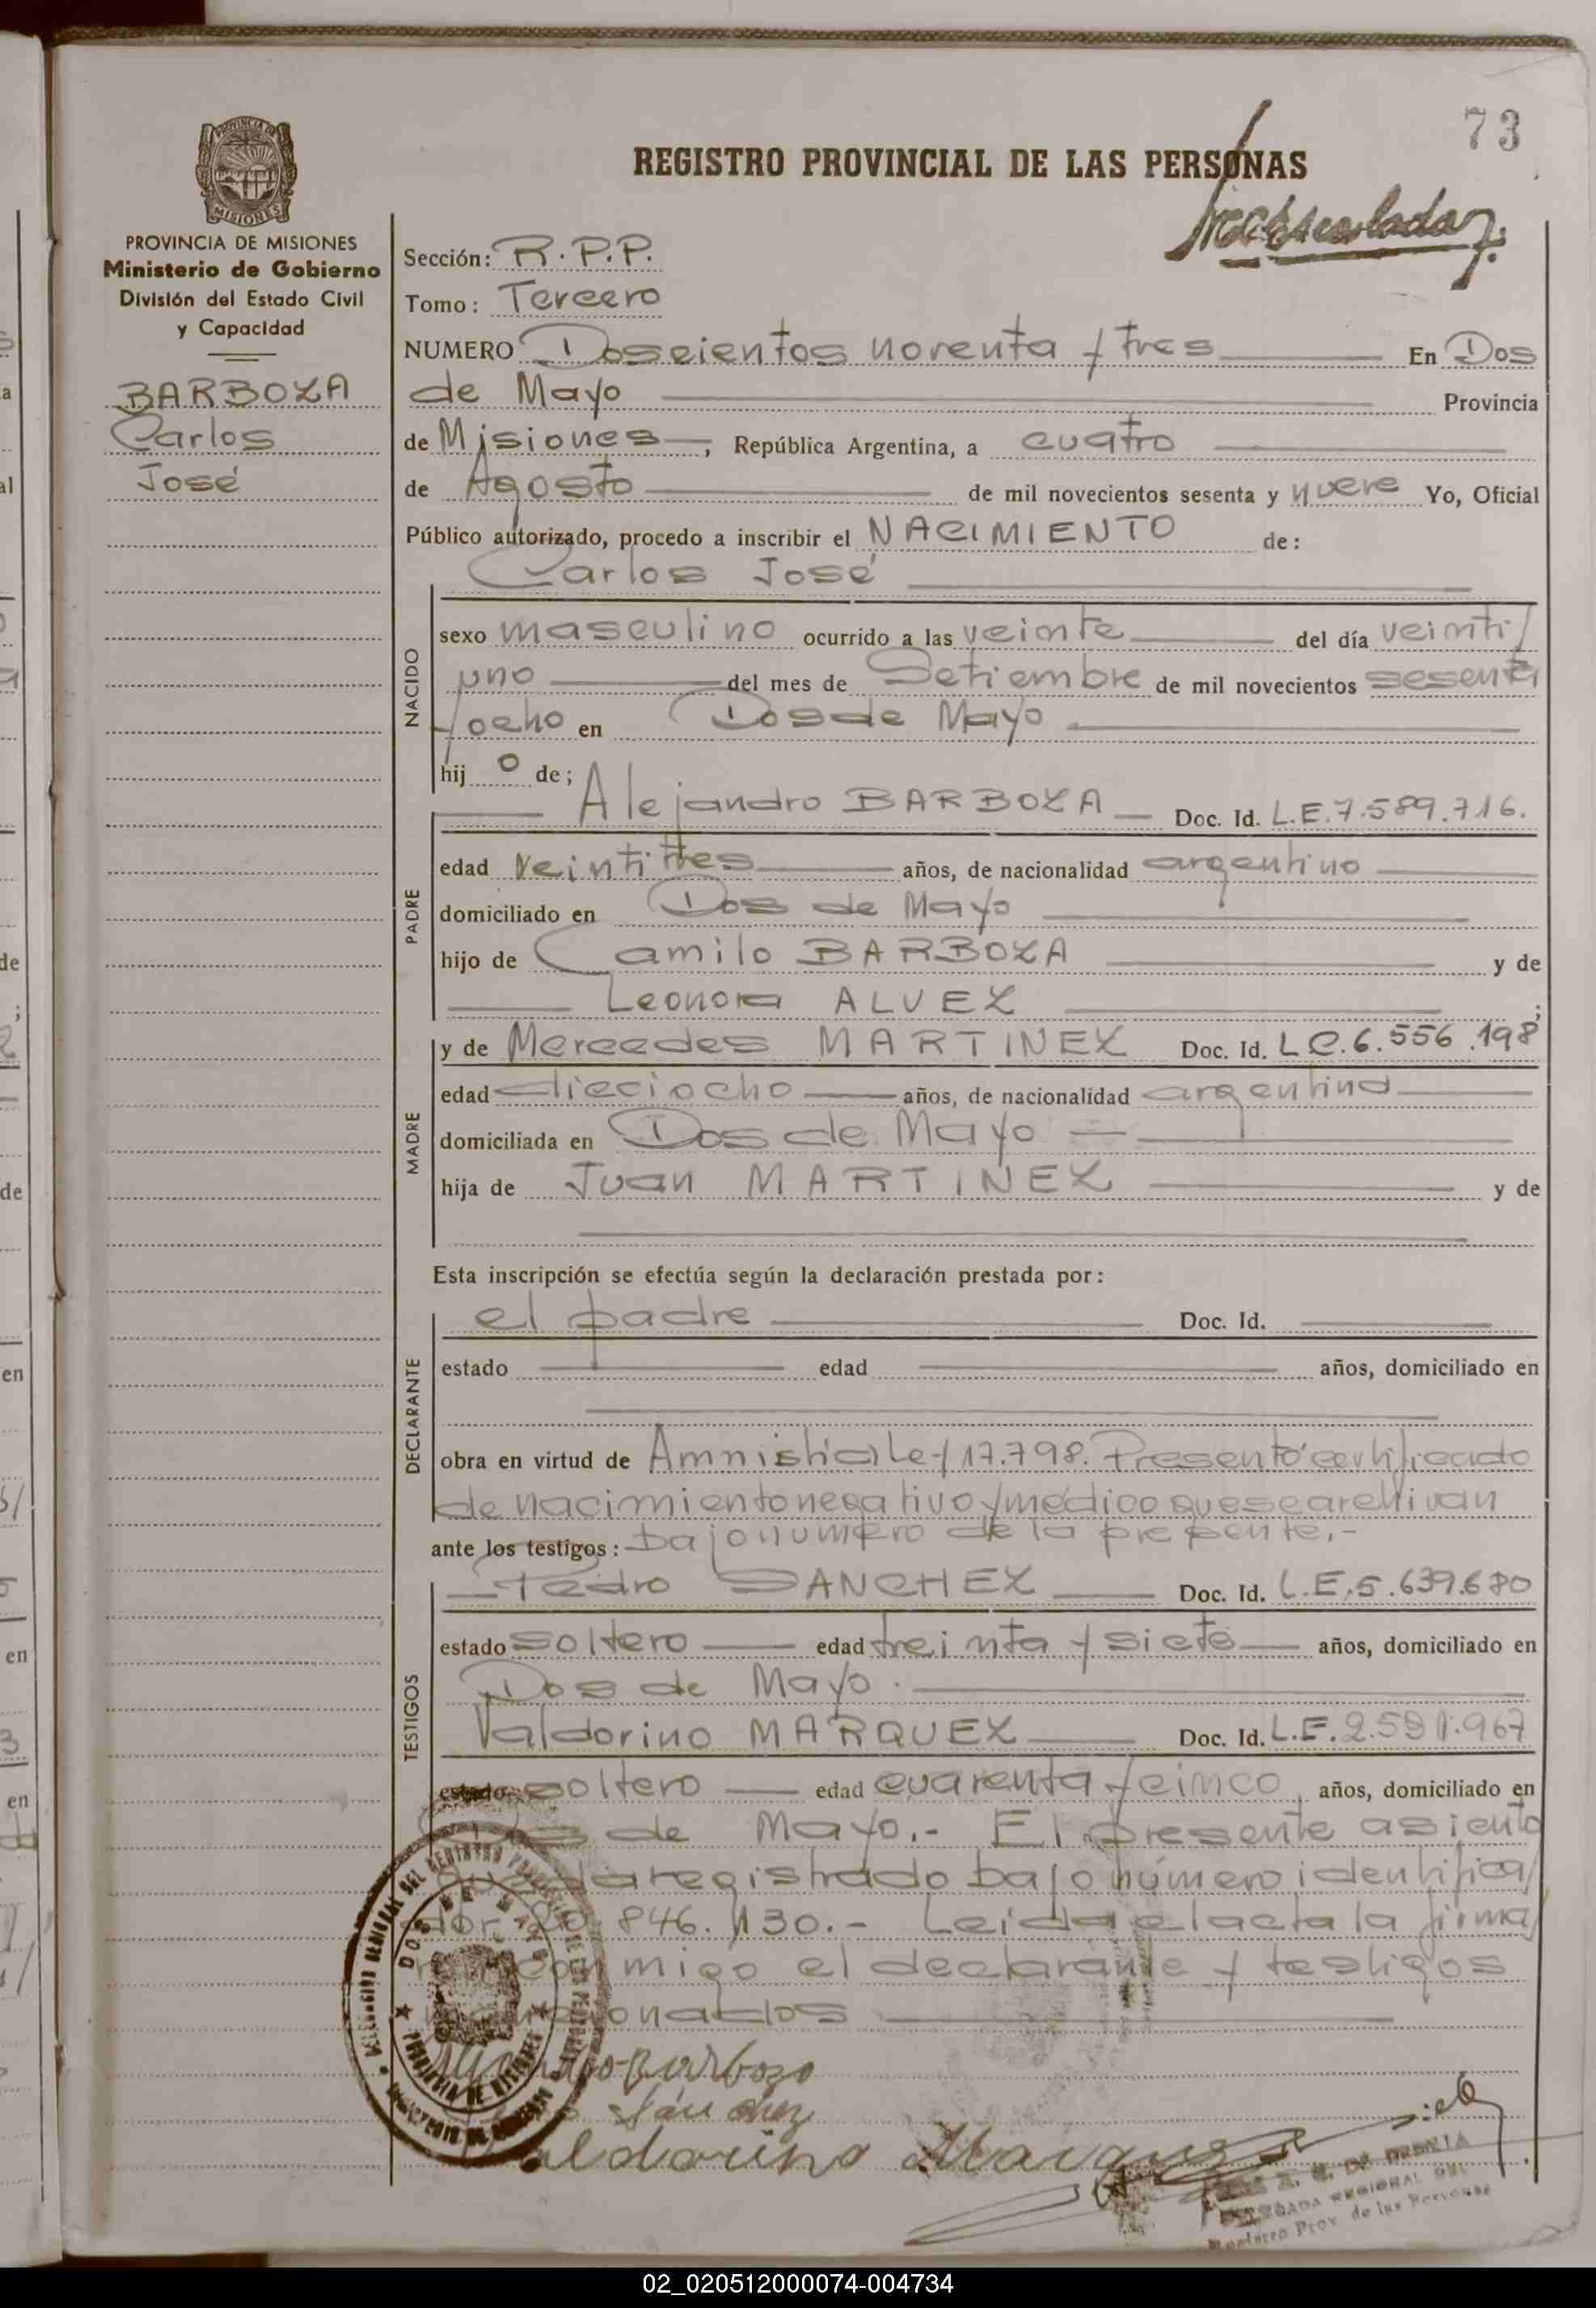 73
REGISTRO PROVINCIAL DE LAS PERSONAS
PROVINCIA DE MISIONES
Ministerio de Gobierno
División del Estado Civil
y Capacidad
BARBOZA
Carlos
José
Sección: R.P.P.
Tomo: Tercero
NUMERO Doscientos noventa y tres En Dos
de Mayo Provincia
de Misiones, República Argentina, a cuatro
de Agosto de mil novecientos sesenta y nueve Yo, Oficial
Público autorizado, procedo a inscribir el NACIMIENTO de:
Carlos José
NACIDO
sexo masculino ocurrido a las veinte del día veinti/
uno del mes de Setiembre de mil novecientos sesenta
y ocho en Dos de Mayo
hijo de;
Alejandro BARBOZA Doc. Id. L.E.7.589.716.
PADRE
edad veintitres años, de nacionalidad argentino
domiciliado en Dos de Mayo
hijo de Camilo BARBOZA y de
Leonora ALVEZ ;
MADRE
y de Mercedes MARTINEZ Doc. Id. L.C.6.556.198
edad dieciocho años, de nacionalidad argentina
domiciliada en Dos de Mayo
hija de Juan MARTINEZ y de
Esta inscripción se efectúa según la declaración prestada por:
DECLARANTE
el padre Doc. Id.
estado edad años, domiciliado en
obra en virtud de Amnistia Ley 17.798. Presentó certificado
de nacimiento negativo y médico que se archivan
ante los testigos: bajo numero de la presente.-
TESTIGOS
Pedro SANCHEZ Doc. Id. L.E.5.639.680
estado soltero edad treinta y siete años, domiciliado en
Dos de Mayo.
Valdorino MARQUEZ Doc. Id. L.E.2.591.967
estado soltero edad cuarenta y cinco años, domiciliado en
Dos de Mayo.- El presente asiento
registrado bajo número identifica/
dor 20.846.130.- Leida el acta la firma/
conmigo el declarante y testigos
Barbozo
Sánchez
Valdorino Marquez
DOS DE MAYO
PROVINCIA DE MISIONES
REGIONAL DEL
Registro Prov. de las Personas
02_020512000074-004734